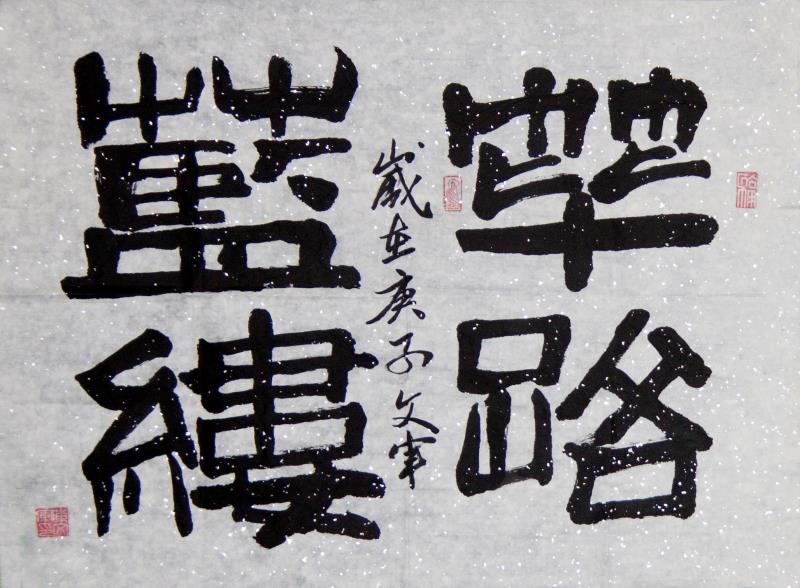 筚路
藍縷
歲在庚子文军